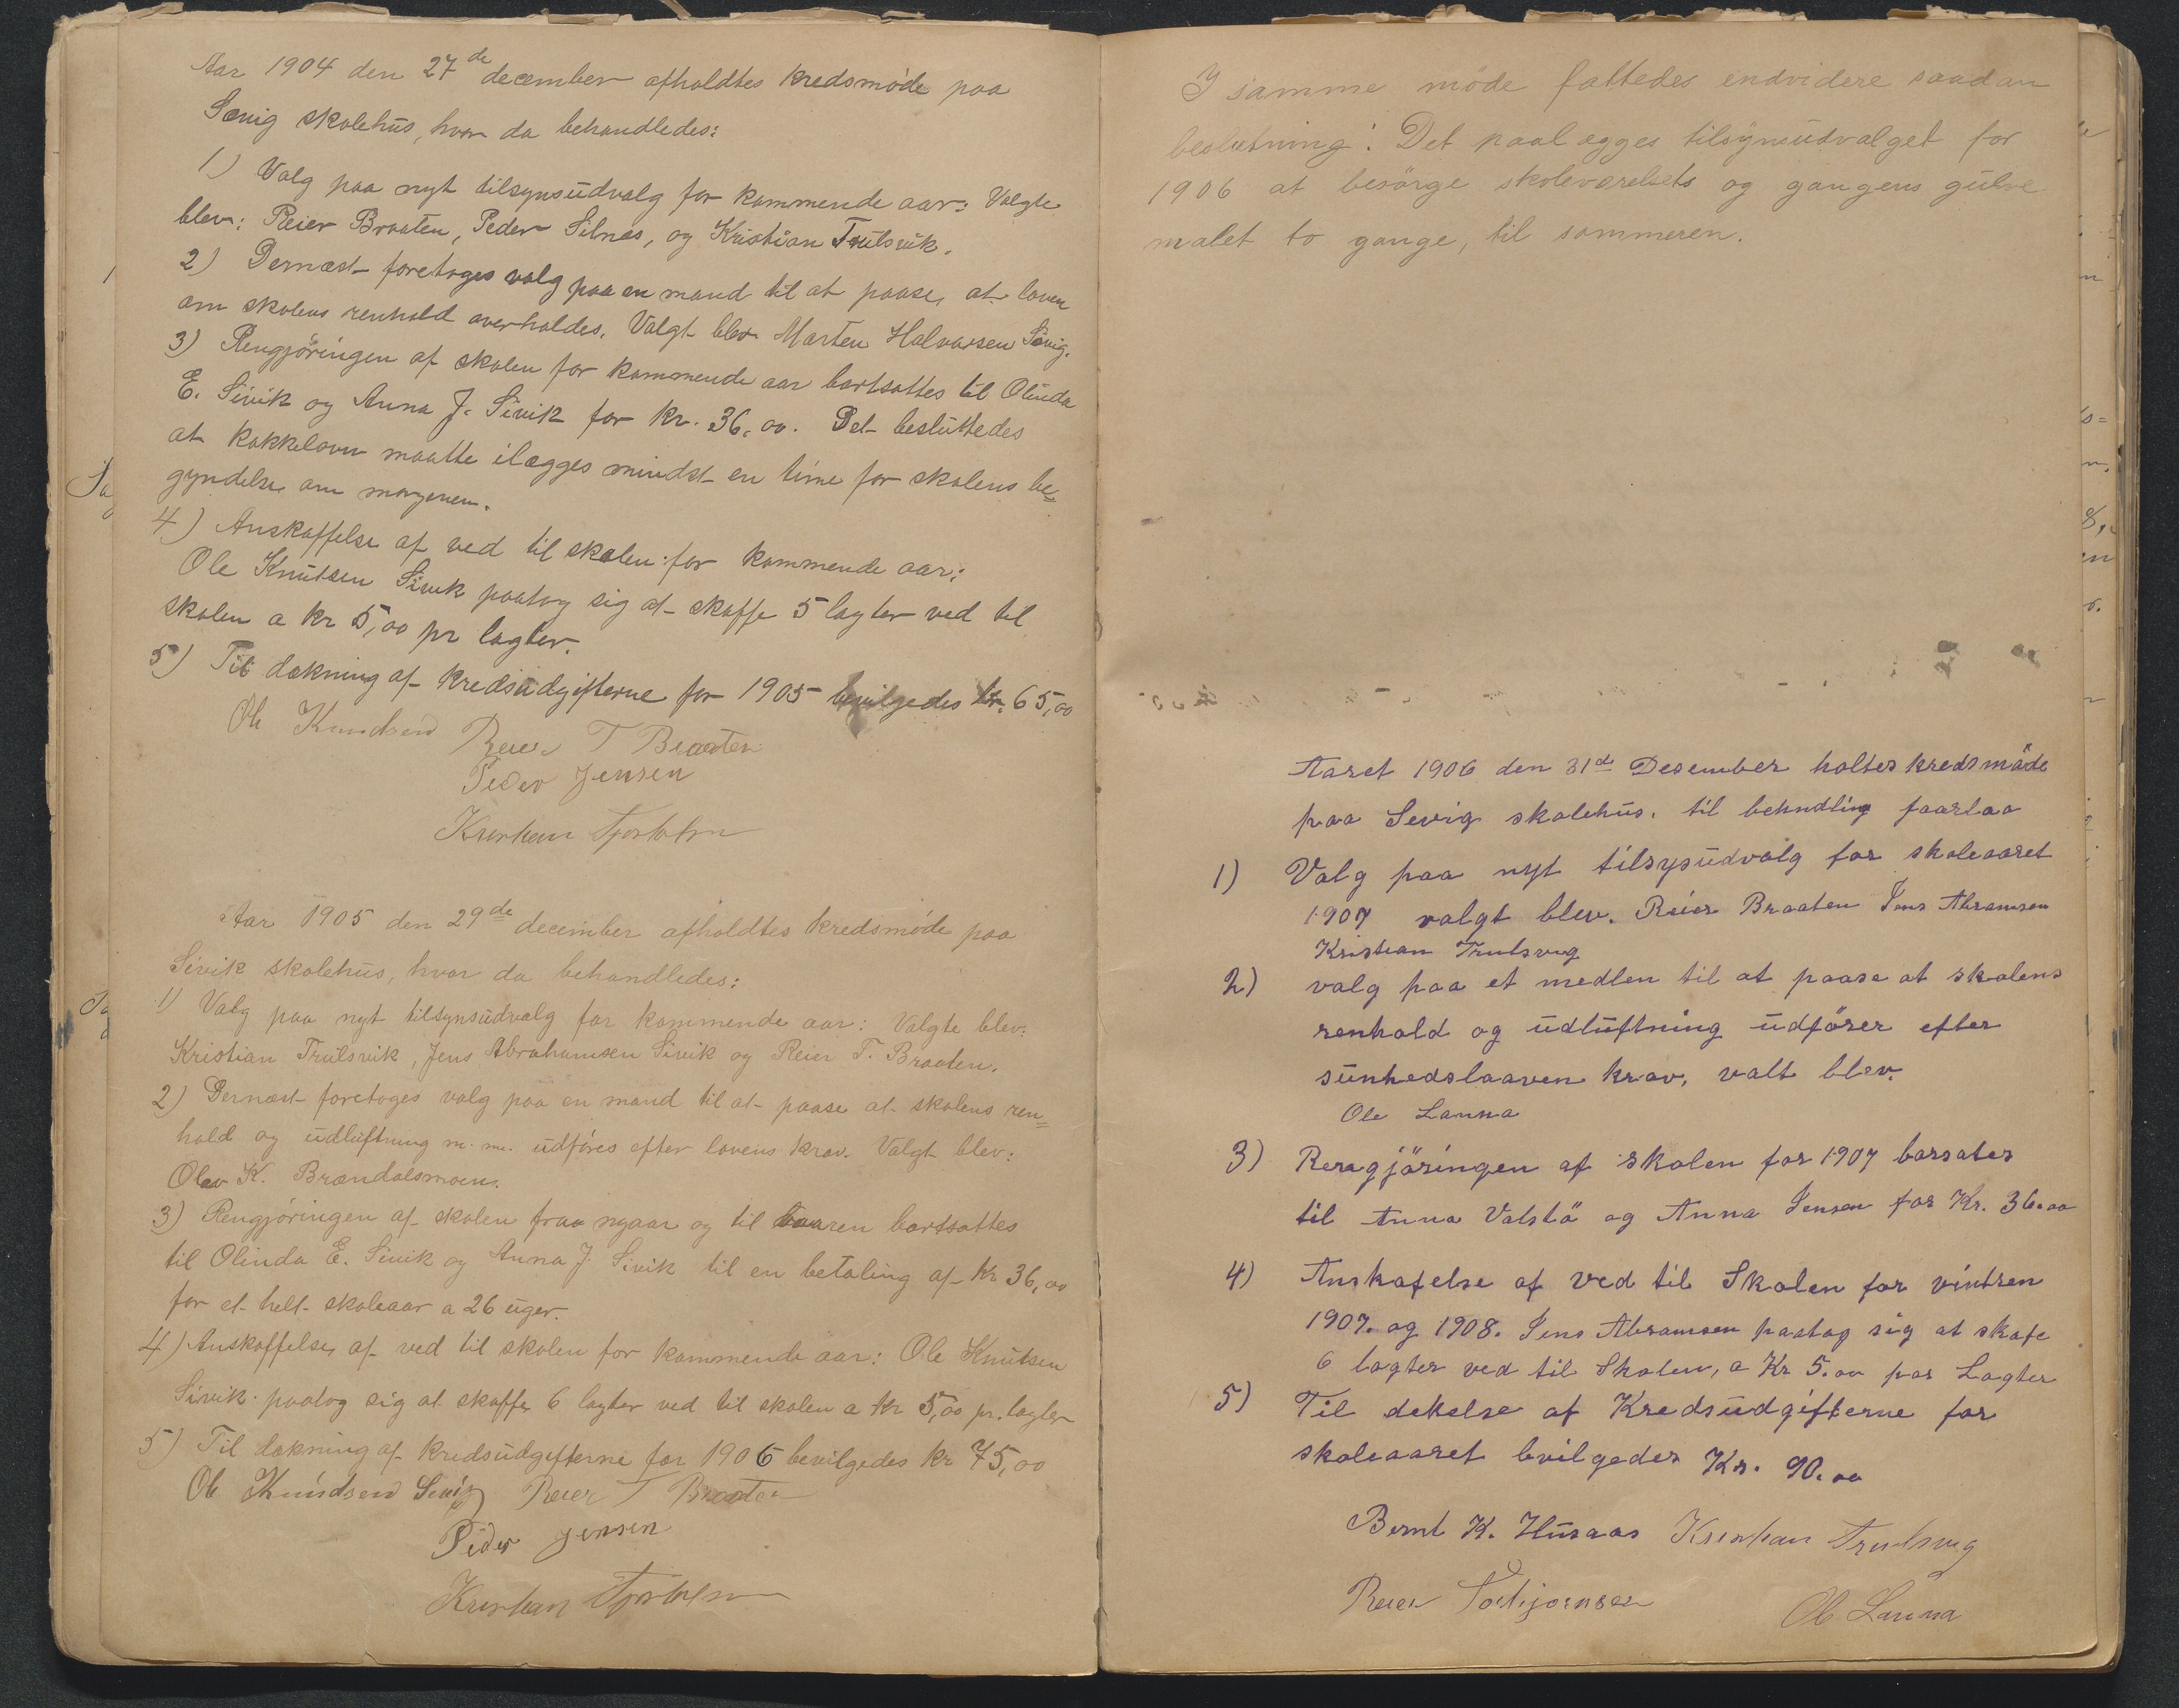 Aar 1904 den 27de december afholdtes kredsmøde paa
Sævig skolehus, hvor da behandledes:
1) Valg paa nyt tilsynsudvalg for kommende aar: Valgte
blev: Reier Braaten, Peder Silnes, og Kristian Trulsvik.
2) Dernæst foretoges valg paa en mand til at paase, at loven
om skolens renhold overholdes. Valgt blev Marten Halvorsen Sævig.
3) Rengjøringen af skolen for kommende aar bortsattes til Olinda
E. Sivik og Anna J. Sivik for kr. 36,00. Det besluttedes
at kakkelovn maatte ilægges mindst en time før skolens be=
gyndelse om morgenen.
4) Anskaffelse af ved til skolen for kommende aar:
Ole Knutsen Sivik paatog sig at skaffe 5 lagter ved til
skolen a kr 5,00 pr lagter.
5) Til dækning af kredsudgifterne for 1905 bevilgedes kr. 65,00
Ole Knudsen Reier T Braaten
Peder Jensen
Aar 1905 den 29de december afholdtes kredsmøde paa
Sivik skolehus, hvor da behandledes:
1) Valg paa nyt tilsynsudvalg for kommende aar: Valgte blev:
Kristian Trulsvik, Jens Abrahamsen Sivik og Reier T. Braaten.
2) Dernæst foretoges valg paa en mand til at paase at skolens ren=
hold og udluftning m.m. udføres efter lovens krav. Valgt blev:
Olav K. Brændalsmoen.
3) Rengjøringen af skolen fraa nyaar og til vaaren bortsattes
til Olinda E. Sivik og Anna J. Sivik til en betaling af kr 36,00
for et helt skoleaar a 26 uger.
4) Anskaffelse af ved til skolen for kommende aar: Ole Knutsen
Sivik paatog sig at skaffe 6 lagter ved til skolen a kr 5,00 pr. lagter
5) Til dækning af kredsudgifterne for 1906 bevilgedes kr 75,00
Ole Knudsen Sevig Reier T Braaten
Peder Jensen
I samme møde fattedes endvidere saadan
beslutning: Det paalægges tilsynsudvalget for
1906 at besørge skoleværelsets og gangens gulve
malet to gange, til sommeren.
Aaret 1906 den 31de Desember holtes kredsmøde
paa Sevig skolehus. til behndling faarlaa
1) Valg paa nyt tilsysudvalg for skoleaaret
1907 valgt blev. Reier Braaten Jens Abramsen
Kristian Trulsvug
2) valg paa et medlen til at paase at skolens
renhold og udluftning udførер efter
sunhedslaaven krav, valt blev.
Ole Launa
3) Rengjøringen af skolen for 1907 borsates
til Anna Valstø og Anna Jensen for Kr. 36.00
4) Anskafelse af Ved til Skolen for vintren
1907. og 1908. Jens Abramsen paatog sig at skafe
6 lagter ved til Skolen, a Kr 5.00 par Lagter
5) Til dekelse af Kredsudgifterne for
skoleaaret bvilgedes Kr. 90.00
Bernt K. Husaas Kristian Trulsvug
Reier Torbjørnsen Ole Launa